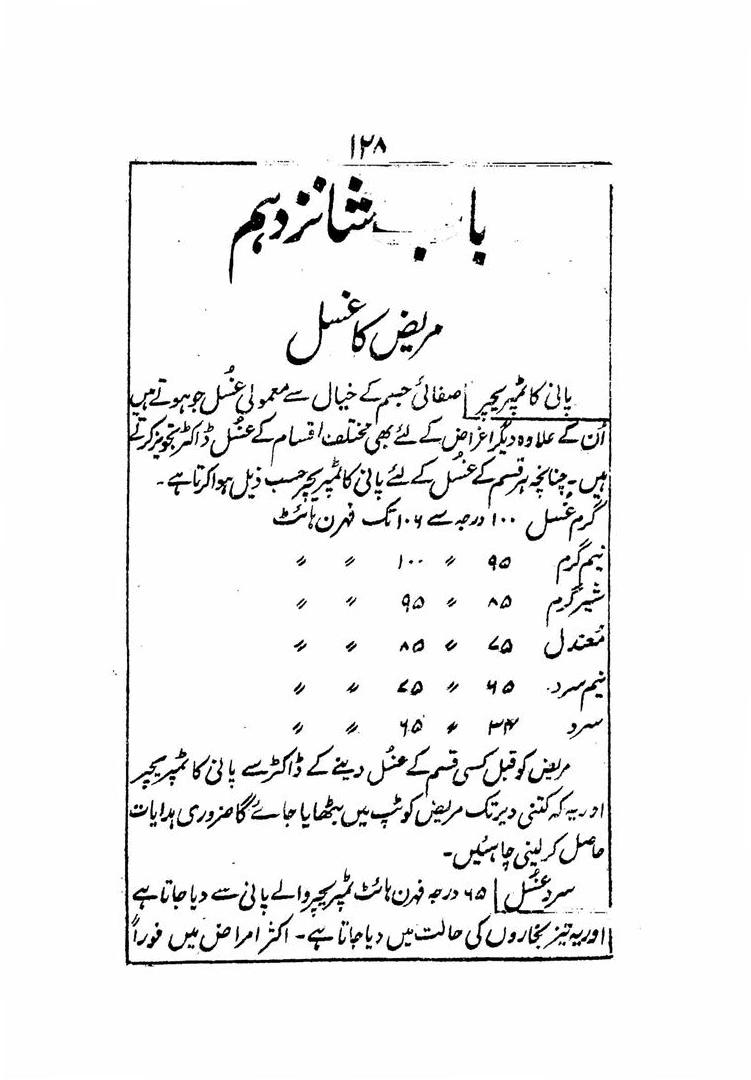 ۱۲۸
باب شانزدہم
مریض کا غسل
پانی کا ٹمپریچر صفائی جسم کے خیال سے معمولی غسل جو ہوتے ہیں
اُن کے علاوہ دیگر اغراض کے لئے بھی مختلف اقسام کے غسل ڈاکٹر تجویز کرتے
ہیں۔ چنانچہ ہر قسم کے غسل کے لئے پانی کا ٹمپریچر حسب ذیل ہوا کرتا ہے۔
گرم غسل ۱۰۰ درجہ سے ۱۰۶ تک فہرن ہائٹ
نیم گرم ۹۵ " ۱۰۰ " "
شیر گرم ۸۵ " ۹۵ " "
مُعتدل ۷۵ " ۸۵ " "
نیم سرد ۶۵ " ۷۵ " "
سرد " ۶۵ " "
مریض کو قبل کسی قسم کے غسل دینے کے ڈاکٹر سے پانی کا ٹمپریچر
اور یہ کہ کتنی دیر تک مریض کو ٹپ میں بٹھایا جائے گا ضروری ہدایات
حاصل کر لینی چاہئیں۔
سرد غسل ۶۵ درجہ فہرن ہائٹ ٹمپریچر والے پانی سے دیا جاتا ہے
اور یہ تیز بخاروں کی حالت میں دیا جاتا ہے۔ اکثر امراض میں فوراً